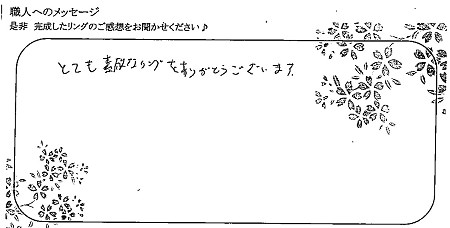 職人へのメッセージ
是非 完成したリングのご感想をお聞かせください♪
とても素敵なリングをありがとうございます。